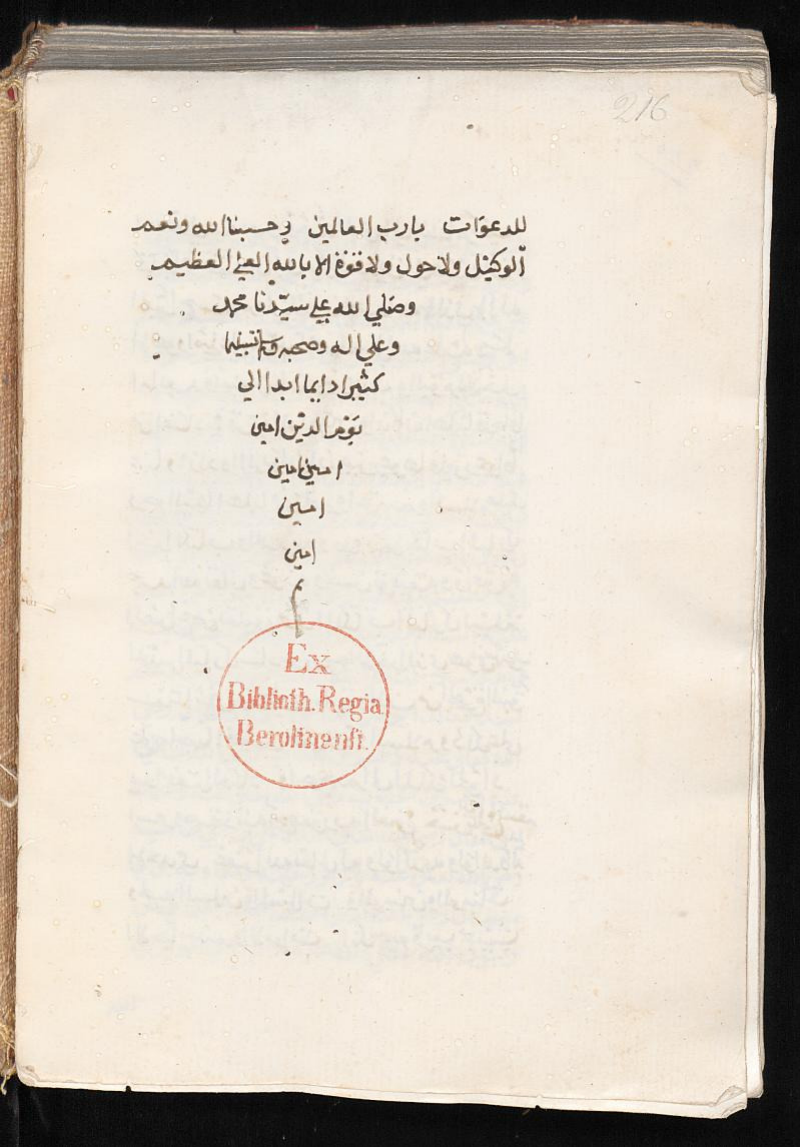 216
للدعوات يا رب العالمين و حسبنا الله ونعم
الوكيل ولا حول ولا قوة الا بالله العلي العظيم
وصلي الله علي سيدنا محمد
وعلي اله وصحبه
كثيرا دايما ابدا الي
يوم الدين امين
امين امين
امين
امين
م
Ex
Biblioth. Regia
Berolinensi.